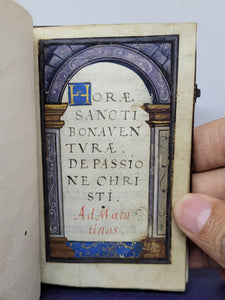 HORÆ
SANCTI
BONAVEN
TVRÆ.
DE PASSIO
NE CHRI
STI.
Ad Matu
tinas.